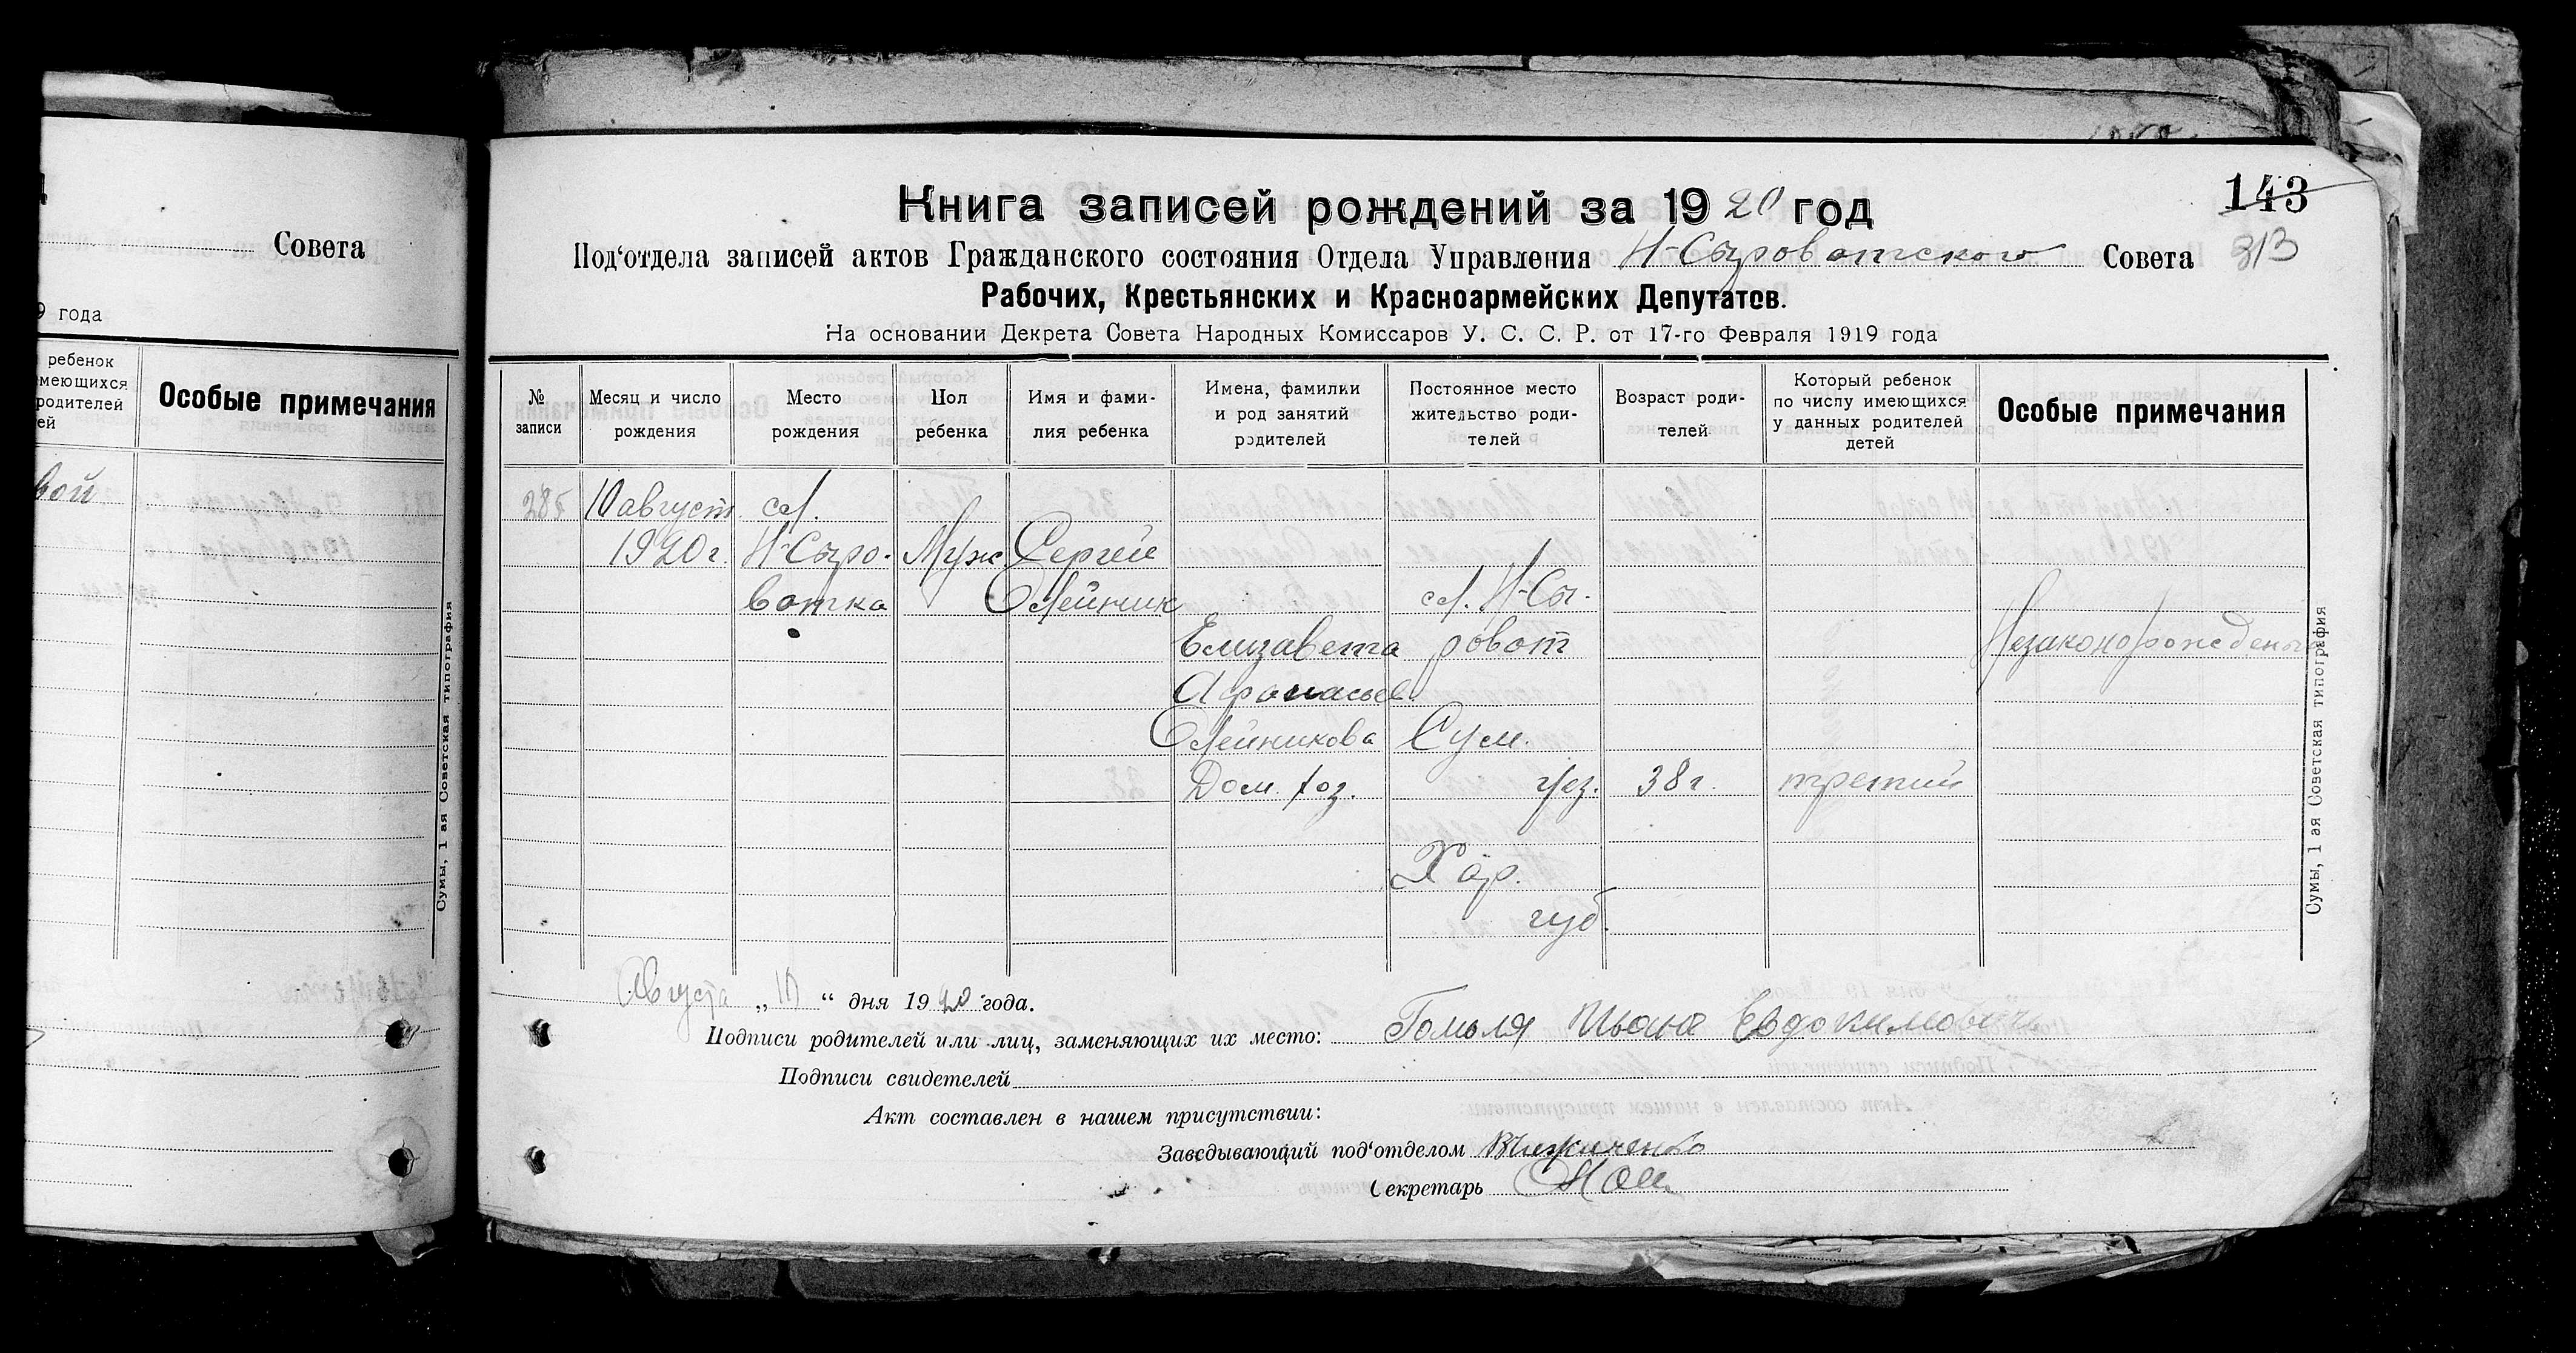 Совета
9 года
ребенок
меющихся
родителей
ей
Особые примечания
вой
Сумы, 1 ая Советская типография
143
Книга записей рождений за 1920 год
Под'отдела записей актов Гражданского состояния Отдела Управления Н-Сыроватского Совета
313
Рабочих, Крестьянских и Красноармейских Депутатов.
На основании Декрета Совета Народных Комиссаров У. С. С. Р. от 17-го Февраля 1919 года
№ записи
Месяц и число рождения
Место рождения
Пол ребенка
Имя и фами- лия ребенка
Имена, фамилии и род занятий родителей
Постоянное место жительство роди- телей
Возраст роди- телей
Который ребенок по числу имеющихся у данных родителей детей
Особые примечания
285 10 август сл.
1920 г. Н-Сыро- Муж. Сергей
ватка Олейник сл. Н-Сы-
Елизавета роват Незаконорожденый
Афонасьев
Олейникова Сум.
Дом. хоз. уез. 38 г. третий
Хар.
губ.
Августа „10“ дня 1920 года.
Подписи родителей или лиц, заменяющих их место: Гомоля Ивана Евдокимович
Подписи свидетелей
Акт составлен в нашем присутствии:
Заведывающий под'отделом
Секретарь
Сумы, 1 ая Советская типография